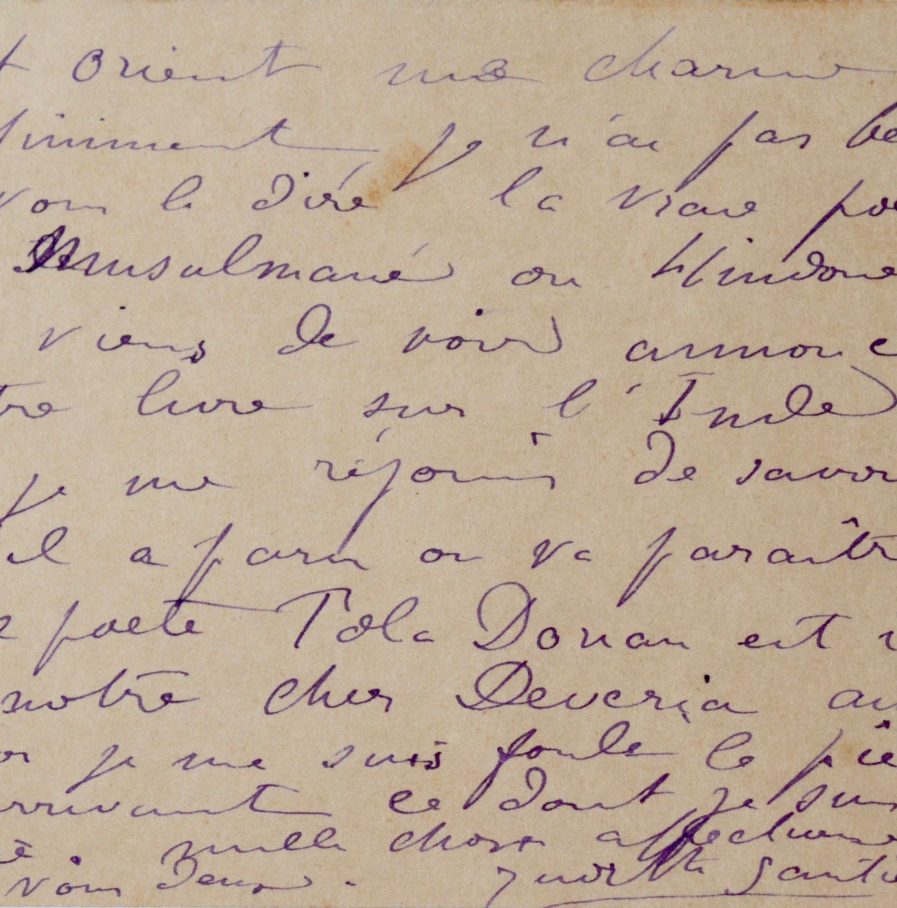 t orient me charme
finiment je n'ai pas be
vous le dire la vraie poé
Musulmane ou Hindoue
viens de voir annonc
tre livre sur l'Inde
je me réjouis de savoir
il a paru ou va paraîtr
e poete Tola Dorian est v
notre cher Deveria au
or je me suis foulé le pie
rrivant ce dont je suis
mille choses affectueuse
à vous deux. Judith Gautie